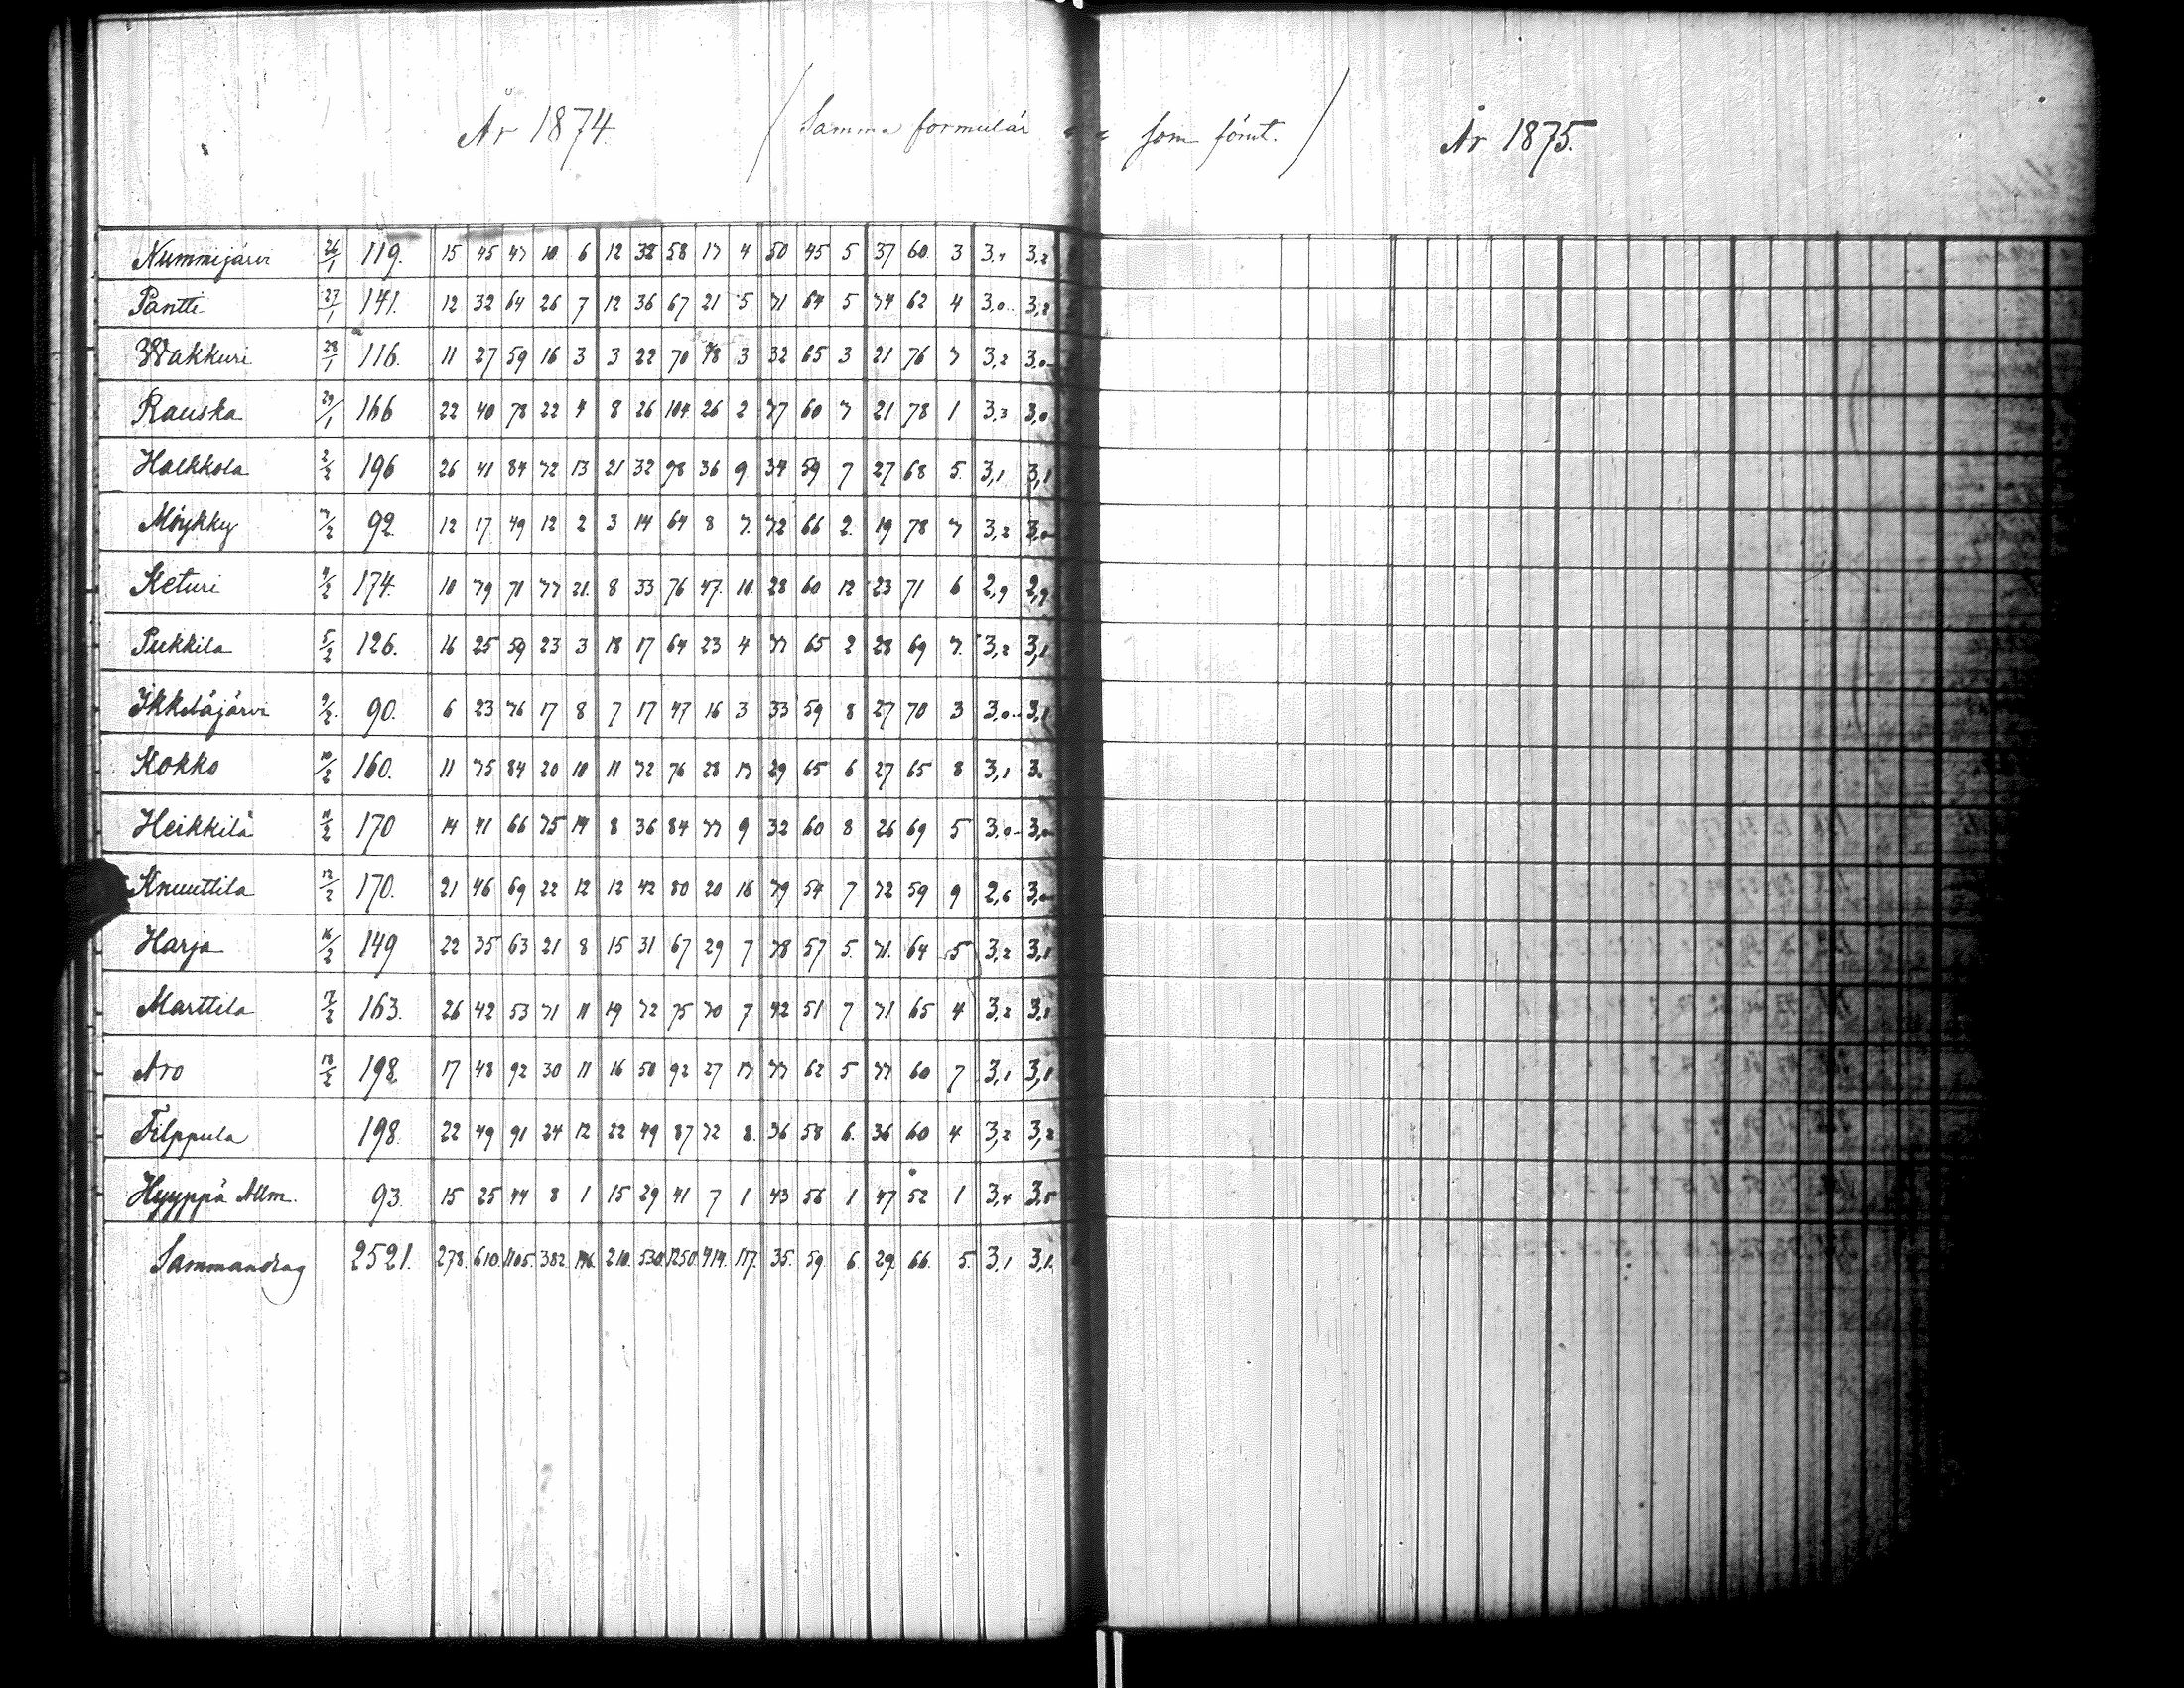 År 1874. (Samma formulär som förut.) År 1875.
Nummijärvi 26/1 119. 15 45 43 10 6 12 32 58 13 4 50 45 5 37 60. 3 3,4 3,2
Pantti 27/1 141. 12 32 64 26 7 12 36 67 21 5 31 64 5 34 62 4 3,0 3,2
Wakkuri 28/1 116. 11 27 59 16 3 3 22 70 18 3 32 65 3 21 76 3 3,2 3,0
Rauska 29/1 166 22 40 78 22 4 8 26 104. 26 2 37 60 3 21 78 1 3,3 3,0
Halkkola 2/2 196 26 41 84 32 13 21 32 98 36 9 34 59 7 27 68 5. 3,1 3,1
Möykky 3/2 92. 12 17 49 12 2 3 14 64 8 3. 32 66 2. 19 78 3 3,2 3,0
Keturi 4/2 174. 10 39 71 33 21. 8 33 76 47. 10. 28 60 12 23 71 6 2,9 2,9
Pukkila 5/2 126. 16 25 59 23 3 18 17 64 23 4 33 65 2 28 69 3. 3,2 3,1
Ikkeläjärvi 9/2 90. 6 23 36 17 8 7 17 47 16 3 33 59 8 27 70 3 3,0 3,1
Kokko 10/2 160. 11 35 84 20 10 11 32 76 28 13 29 65 6 27 65 8 3,1 3.
Heikkilä 11/2 170 14 41 66 35 14 8 36 84 33 9 32 60 8 26 69 5 3,0 3,0
Knuuttila 12/2 170. 21 46 69 22 12 12 42 80 20 16 39 54 7 32 59 9 2,6 3,0
Harja 16/2 149 22 35 63 21 8 15 31 67 29 7 38 57 5. 31. 64 5 3,2 3,1
Marttila 17/2 163. 26 42 53 31 11 19 32 75 30 7 42 51 7 31 65 4 3,2 3,2
Aro 18/2 198. 17 48 92 30 11 16 50 92 27 13 33 62 5 33 60 7 3,1 3,1
Filppula 198. 22 49 91 24 12 22 49 87 32 8. 36 58 6. 36 60 4 3,2 3,2
Hyyppä Allm. 93. 15 25 44 8 1 15 29 41 7 1 43 56 1 47 52 1 3,4 3,5
Sammandrag 2521. 278. 610. 1105. 382. 146. 210. 530. 1250. 414. 117. 35. 59. 6. 29. 66. 5. 3,1 3,1.